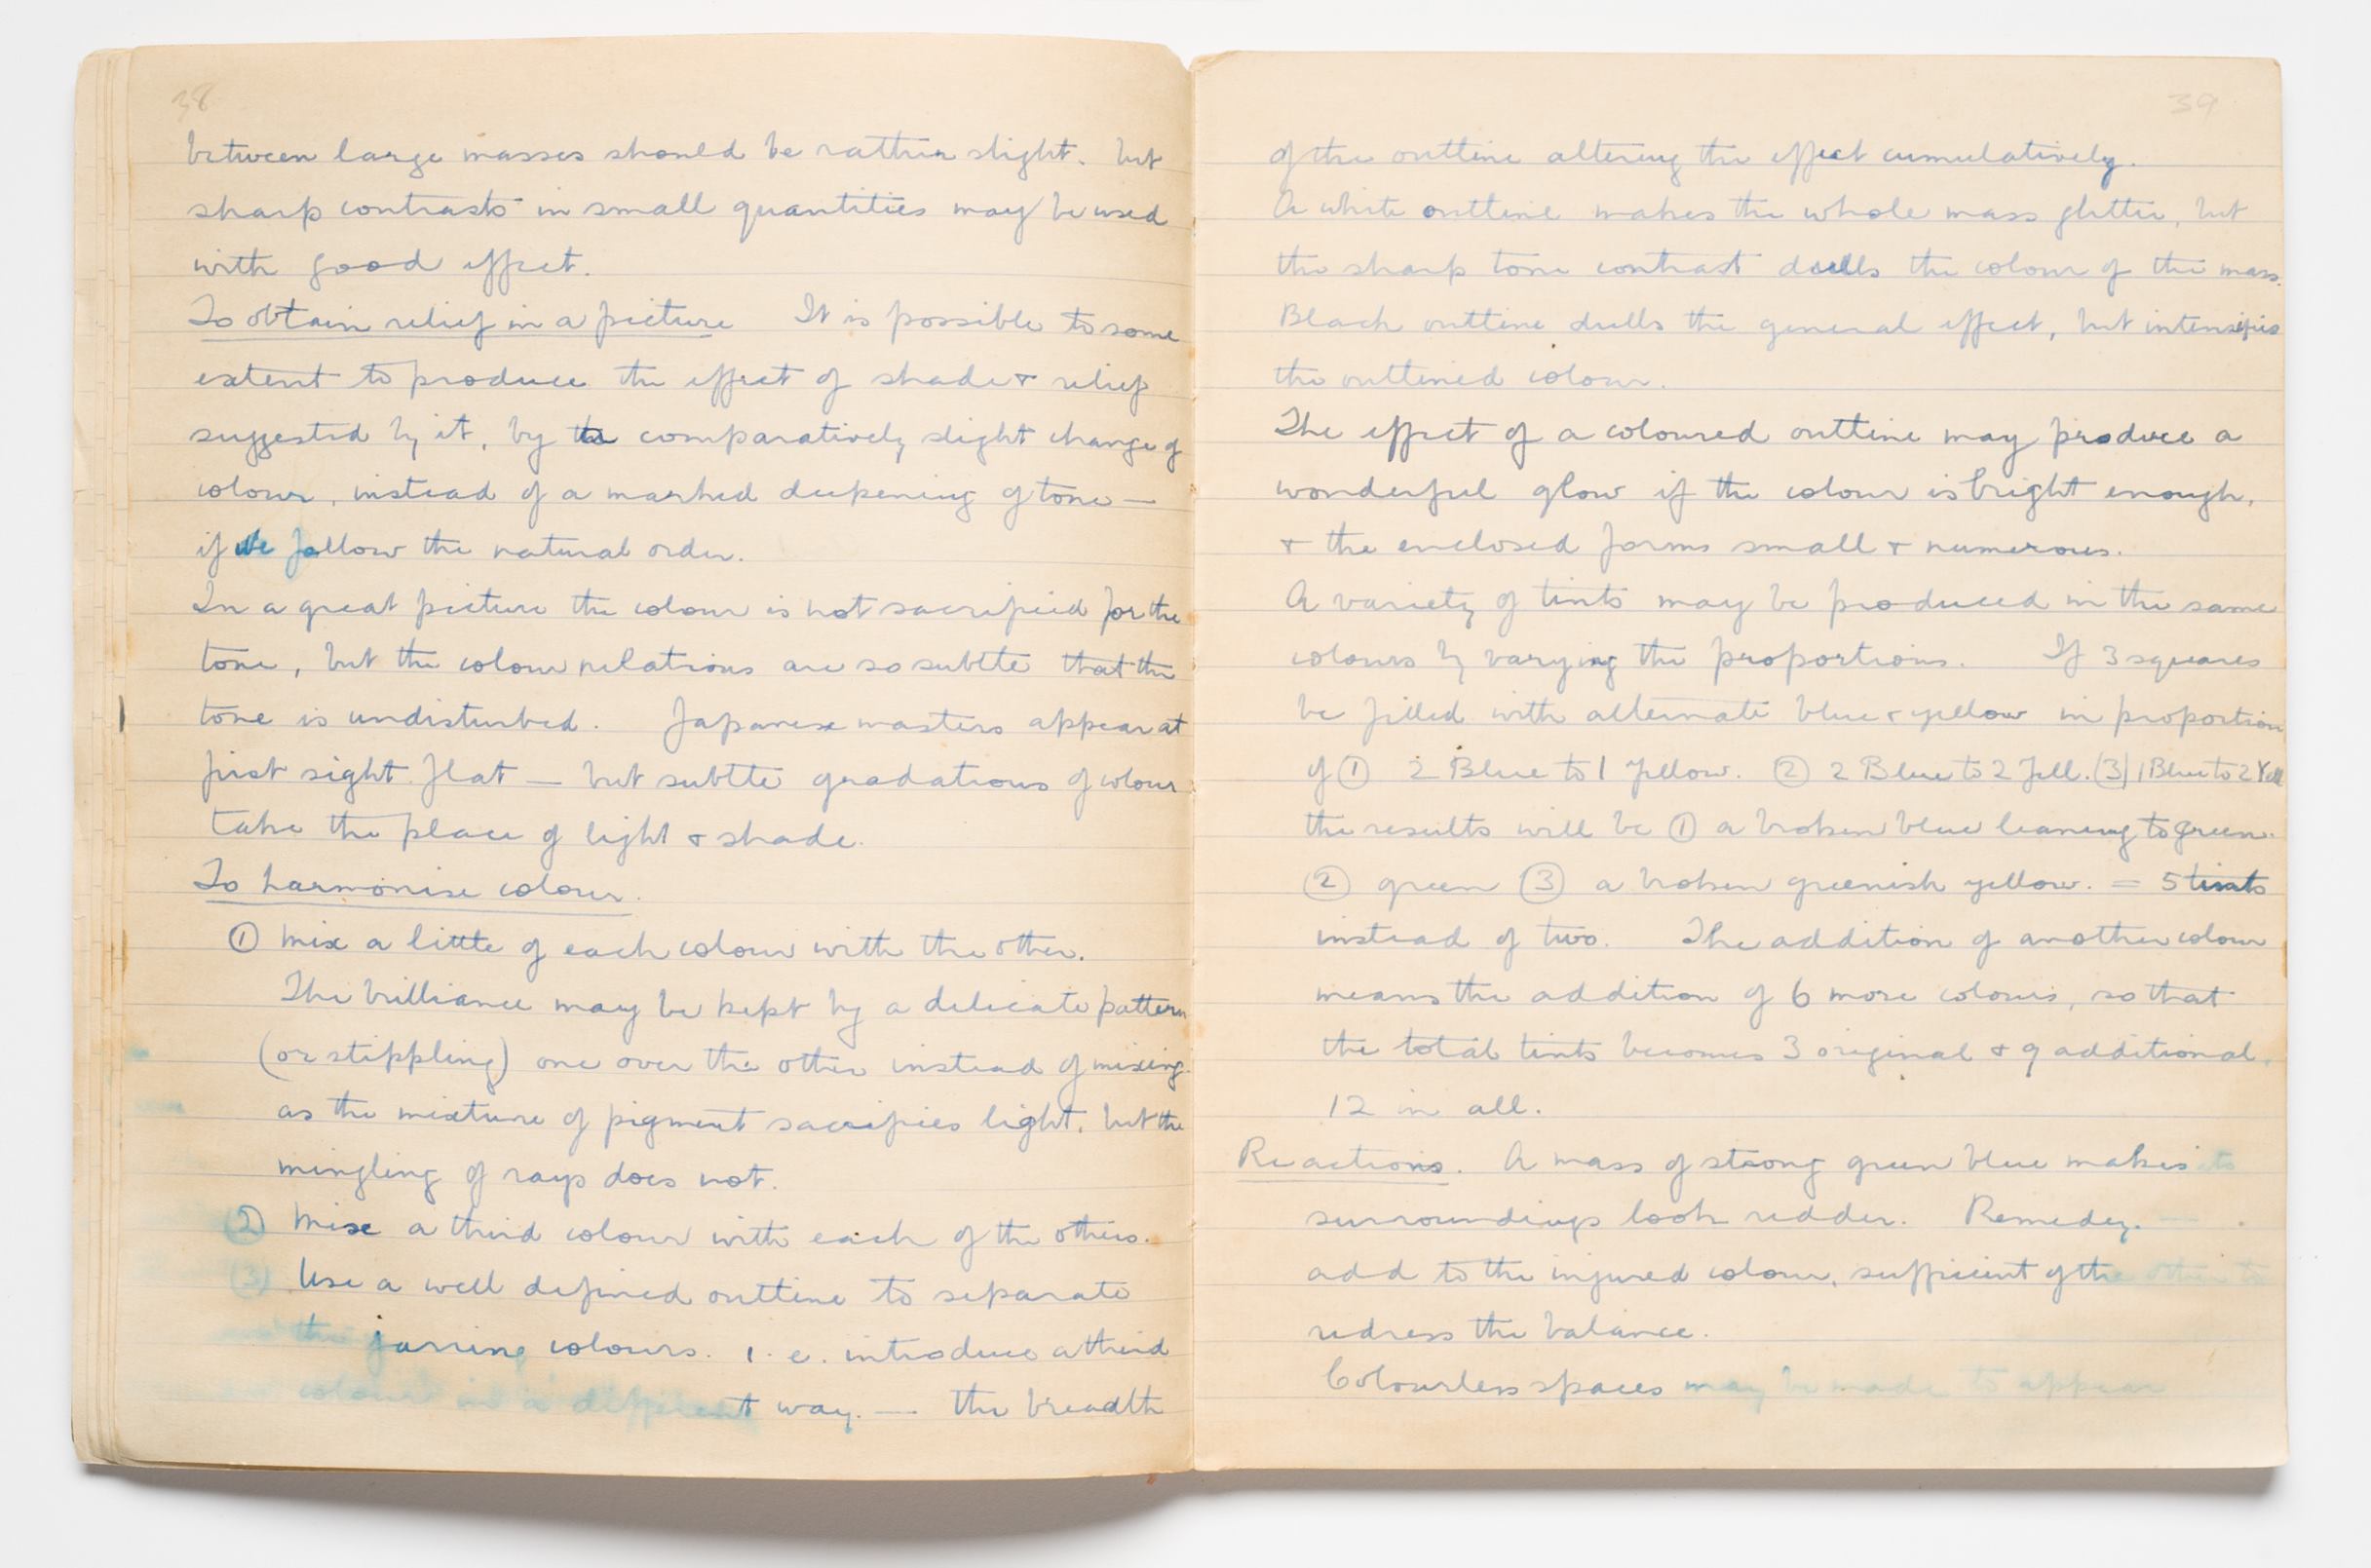 38
between large masses should be rather slight. but
sharp contrasts in small quantities may be used
with good effect.
To obtain relief in a picture It is possible to some
extent to produce the effect of shade & relief
suggested by it, by the comparatively slight change of
colour, instead of a marked deepening of tone —
if we follow the natural order.
In a great picture the colour is not sacrificed for the
tone, but the colour relations are so subtle that the
tone is undisturbed. Japanese masters appear at
first sight flat — but subtle gradations of colour
take the place of light & shade.
To harmonise colour.
① Mix a little of each colour with the other.
The brilliance may be kept by a delicate pattern
(or stippling) one over the other instead of mixing.
as the mixture of pigment sacrifices light, but the
mingling of rays does not.
② Mix a third colour with each of the others.
(3) Use a well defined outline to separate
the jarring colours. i.e. introduce a third
colour in a different way. — the breadth
39
of the outline altering the effect cumulatively.
A white outline makes the whole mass glitter, but
the sharp tone contrast dulls the colour of the mass.
Black outline dulls the general effect, but intensifies
the outlined colour.
The effect of a coloured outline may produce a
wonderful glow if the colour is bright enough,
& the enclosed forms small & numerous.
A variety of tints may be produced in the same
colours by varying the proportions. If 3 squares
be filled with alternate blue & yellow in proportion
of ① 2 Blue to 1 Yellow. ② 2 Blue to 2 Yell. (3) 1 Blue to 2 Yell
the results will be ① a broken blue leaning to green.
② green ③ a broken greenish yellow. = 5 tints
instead of two. The addition of another colour
means the addition of 6 more colours, so that
the total tints becomes 3 original & 9 additional.
12 in all.
Reactions. A mass of strong green blue makes its
surroundings look redder. Remedy.
add to the injured colour, sufficient of the other to
redress the balance.
Colourless spaces may be made to appear